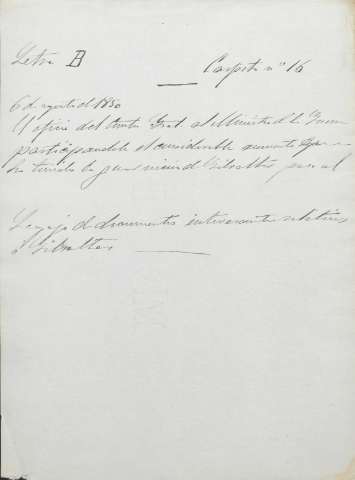 Letra B Carpeta nº 16
6 de agosto de 1830
oficio del Gral. al Ministro de la Guerra
participandole el considerable aumento que
ha tenido la guarnicion de Gibraltar
Legajo de documentos interesantes relativos
a Gibraltar